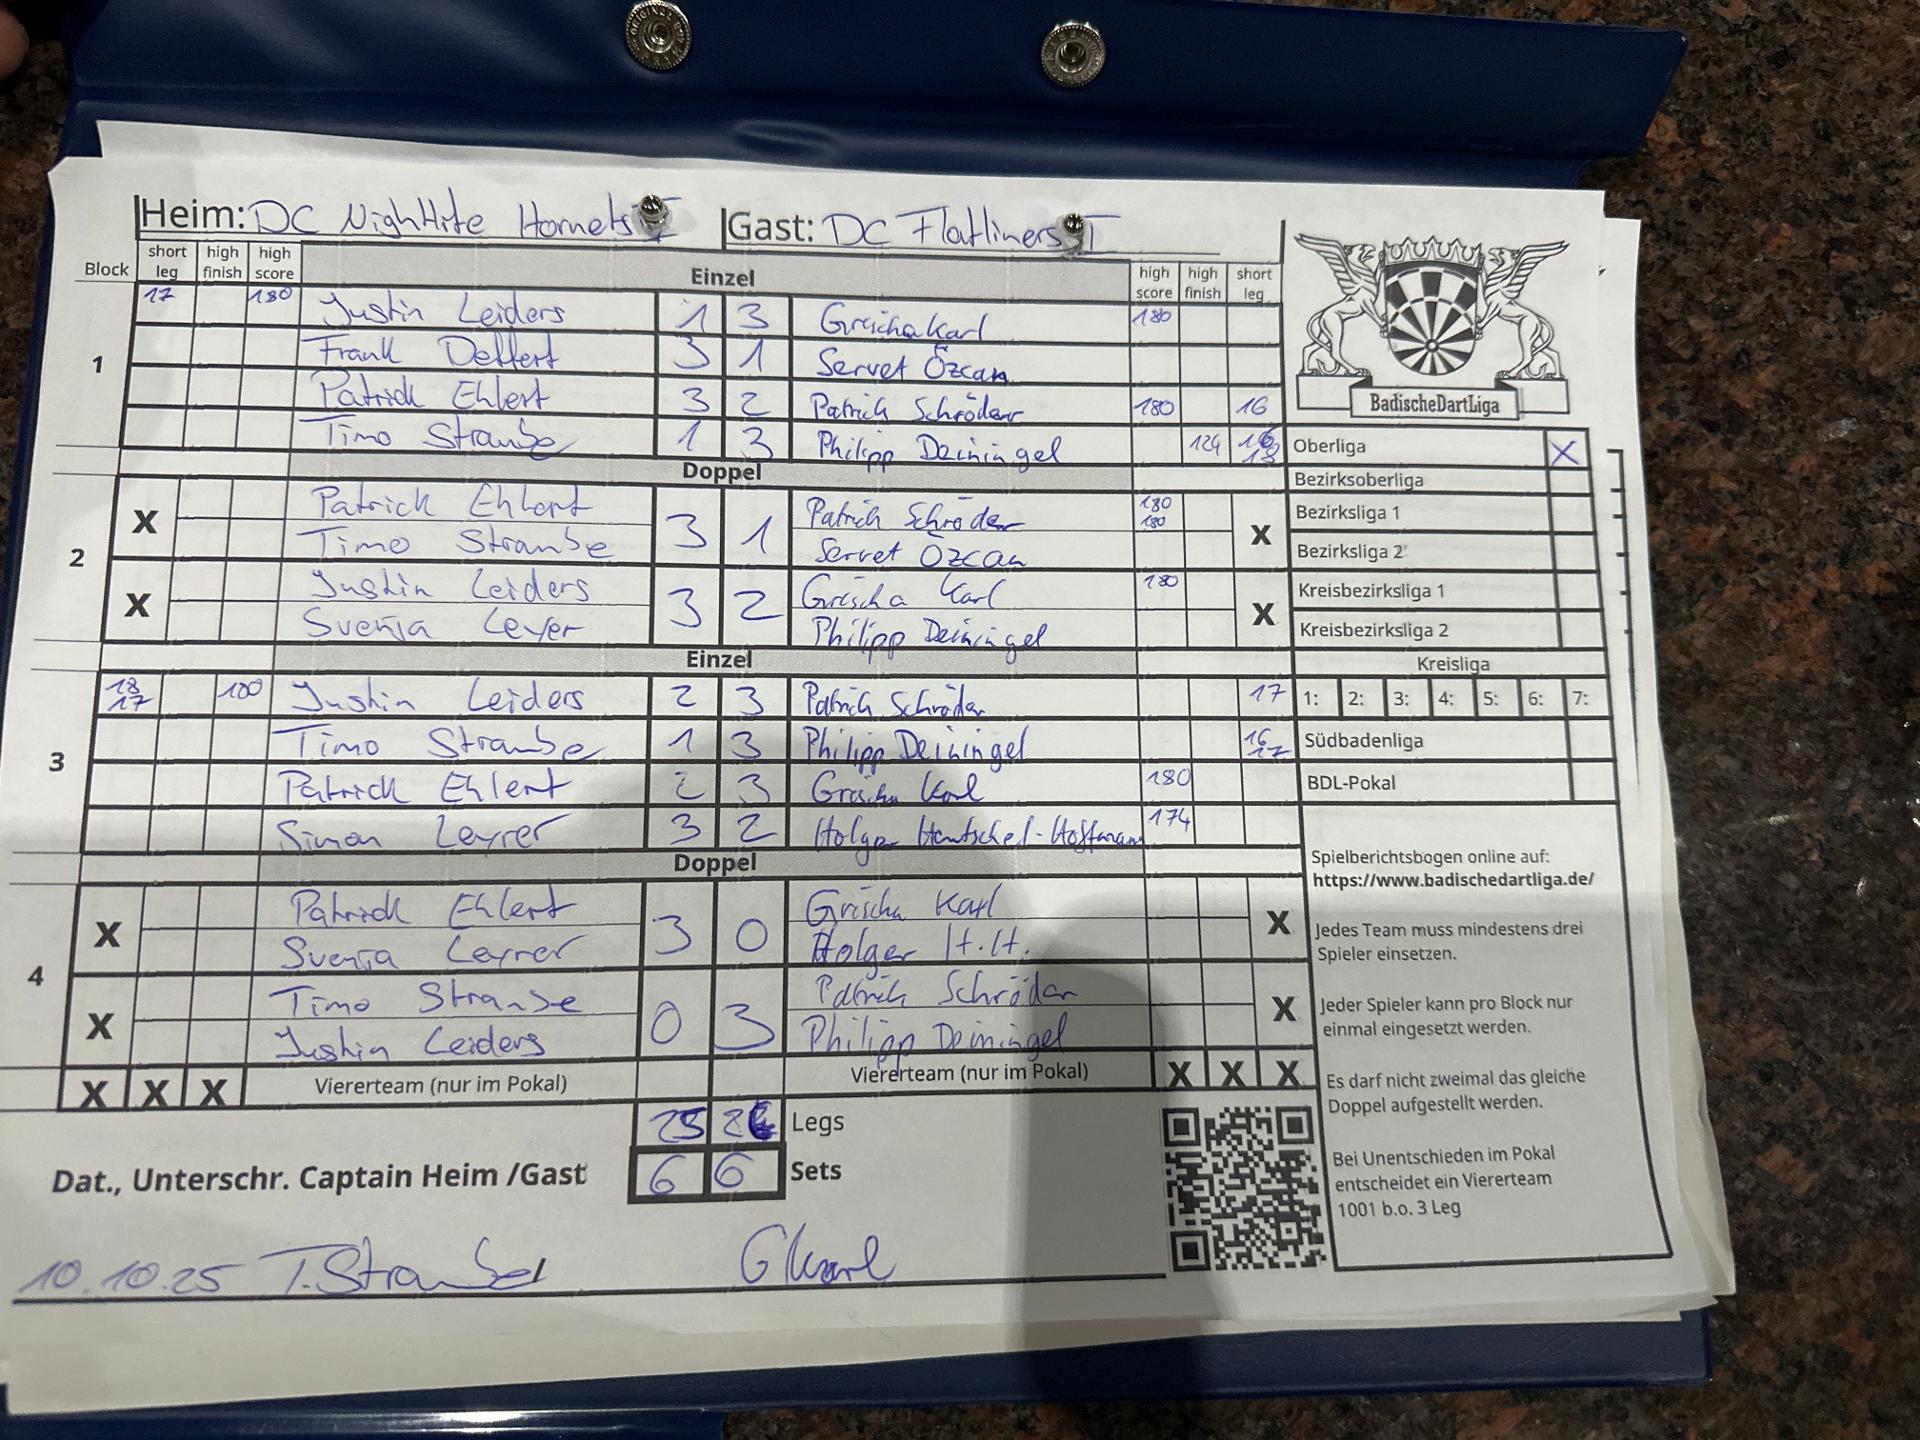 Heim: DC Nighthite Hornets I Gast: DC Flatliners I
Block short leg high finish high score Einzel high score high finish short leg
1
17 180 Justin Leiders 1 3 Grischa Karl 180
Frank Deffert 3 1 Servet Özcan
Patrick Ehlert 3 2 Patrick Schröder 180 16
Timo Straube 1 3 Philipp Deiningel 124 16 18
Doppel
2
X Patrick Ehlert 3 1 Patrick Schröder 180 180 X
Timo Straube Servet Özcan
X Justin Leiders 3 2 Grischa Karl 180 X
Svenja Leyer Philipp Deiningel
Einzel
3
18 17 180 Justin Leiders 2 3 Patrick Schröder 17
Timo Straube 1 3 Philipp Deiningel 16 17
Patrick Ehlert 2 3 Grischa Karl 180
Simon Leyrer 3 2 Holger Hentschel-Hoffmann 174
Doppel
4
X Patrick Ehlert 3 0 Grischa Karl X
Svenja Leyrer Holger H.H.
X Timo Straube 0 3 Patrick Schröder X
Justin Leiders Philipp Deiningel
X X X Viererteam (nur im Pokal) Viererteam (nur im Pokal) X X X
25 Legs
Dat., Unterschr. Captain Heim /Gast 6 6 Sets
10.10.25 T. Straube G Karl
BadischeDartLiga
Oberliga X
Bezirksoberliga
Bezirksliga 1
Bezirksliga 2
Kreisbezirksliga 1
Kreisbezirksliga 2
Kreisliga
1: 2: 3: 4: 5: 6: 7:
Südbadenliga
BDL-Pokal
Spielberichtsbogen online auf:
https://www.badischedartliga.de/
Jedes Team muss mindestens drei
Spieler einsetzen.
Jeder Spieler kann pro Block nur
einmal eingesetzt werden.
Es darf nicht zweimal das gleiche
Doppel aufgestellt werden.
Bei Unentschieden im Pokal
entscheidet ein Viererteam
1001 b.o. 3 Leg